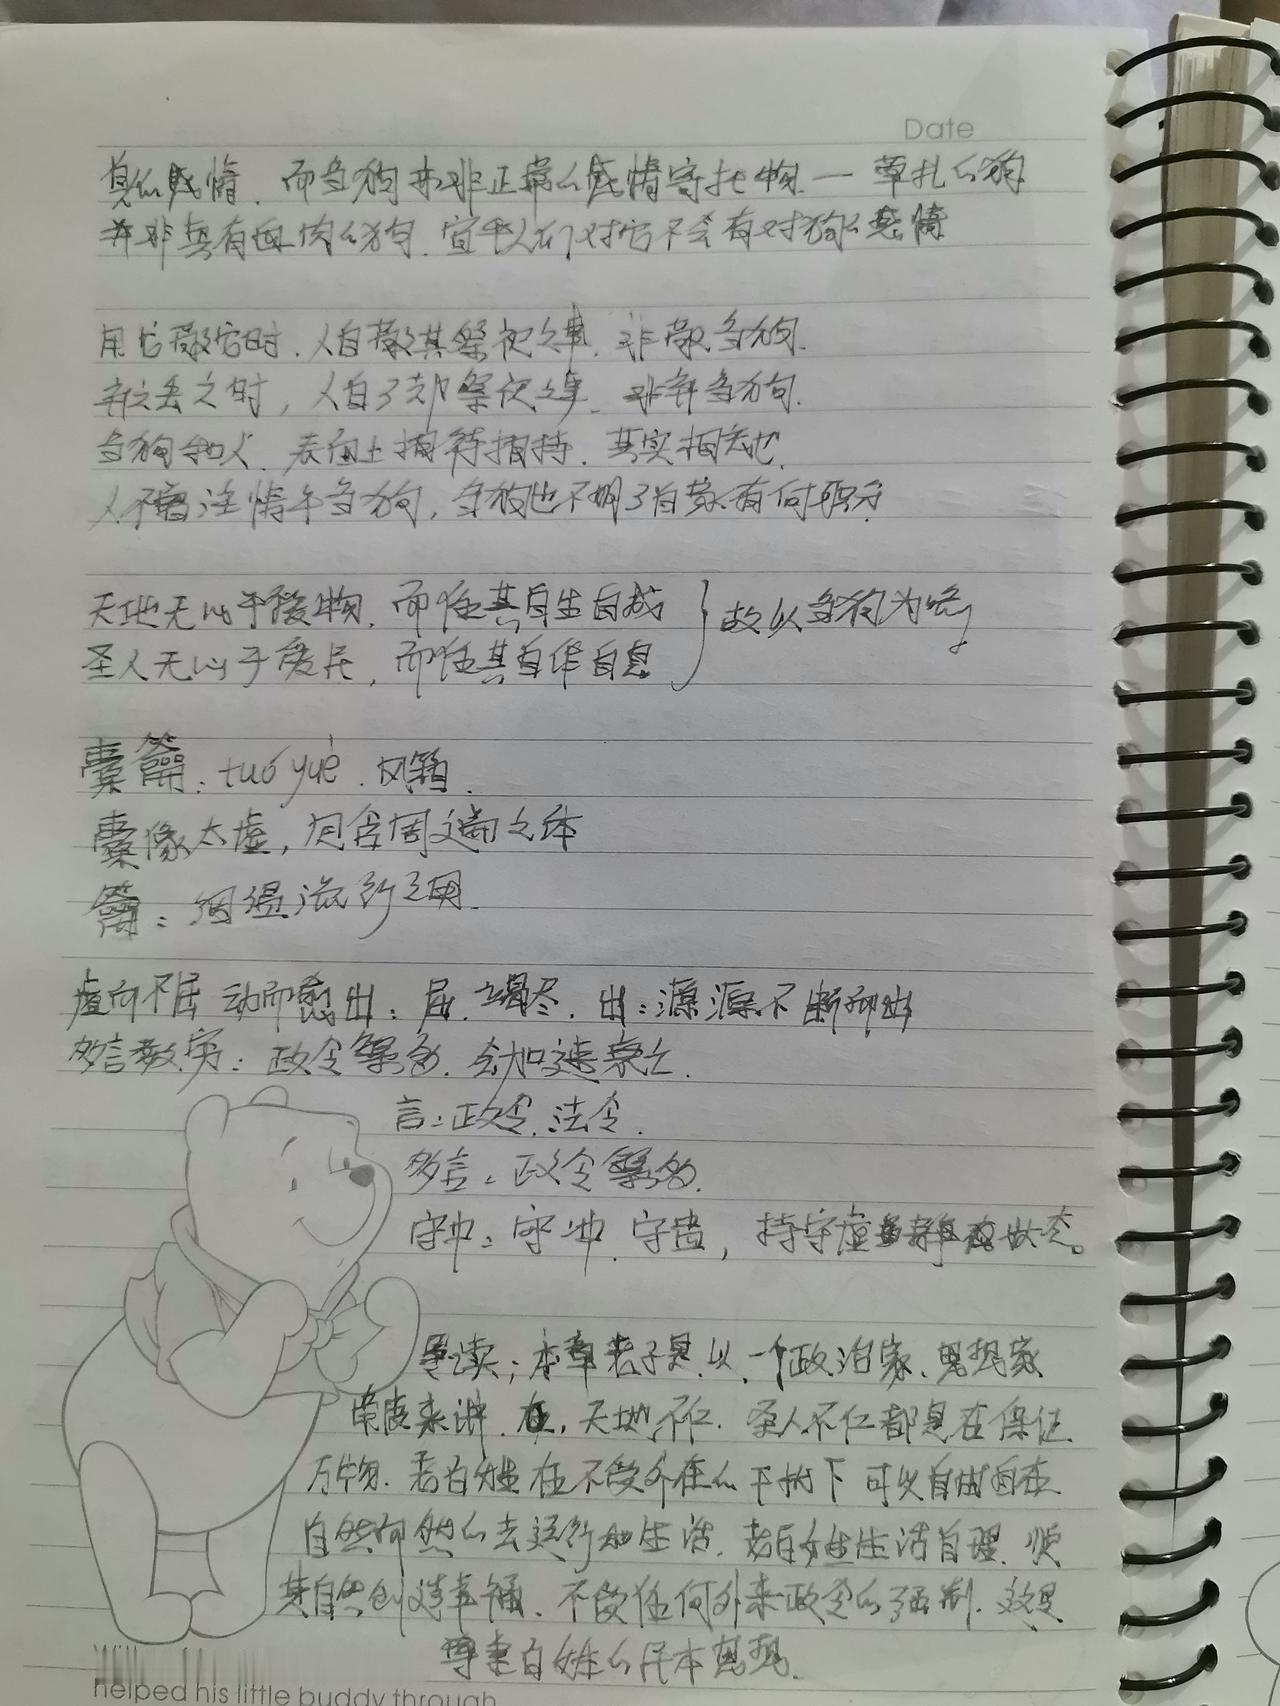 Date
真的感情，而刍狗并非正常的感情寄托物一草扎的狗
并非真有血肉的狗，宣乎人们对它不会有对狗的感情
用它敬它时，人自敬其祭祀之事，非敬刍狗.
弃之丢之时，人自了却祭祀之事，非弃刍狗.
刍狗和人，表面上相待相持，其实相忘也.
人不曾注情于刍狗，刍狗也不明了自家有何职分
天地无心于爱物，而任其自生自成
圣人无心于爱民，而任其自作自息
故以刍狗为喻
橐籥：tuó yuè．风箱．
橐像太虚，包含周遍之体
籥：絪缊流行之用.
虚而不屈 动而愈出：屈．竭尽．出：源源不断而出
多言数穷：政令繁多．会加速衰亡．
言：政令．法令．
多言：政令繁多．
守中：守冲．守虚，持守虚静的状态。
导读；本章老子是以一个政治家、思想家
角度来讲．在，天地不仁．圣人不仁都是在保证
万物．老百姓在不受外在的干扰下可以自由自在
自然而然的去运行和生活．老百姓生活自理．顺
其自然创造幸福．不受任何外来政令的强制．这是
尊重百姓的民本思想．
helped his little buddy through